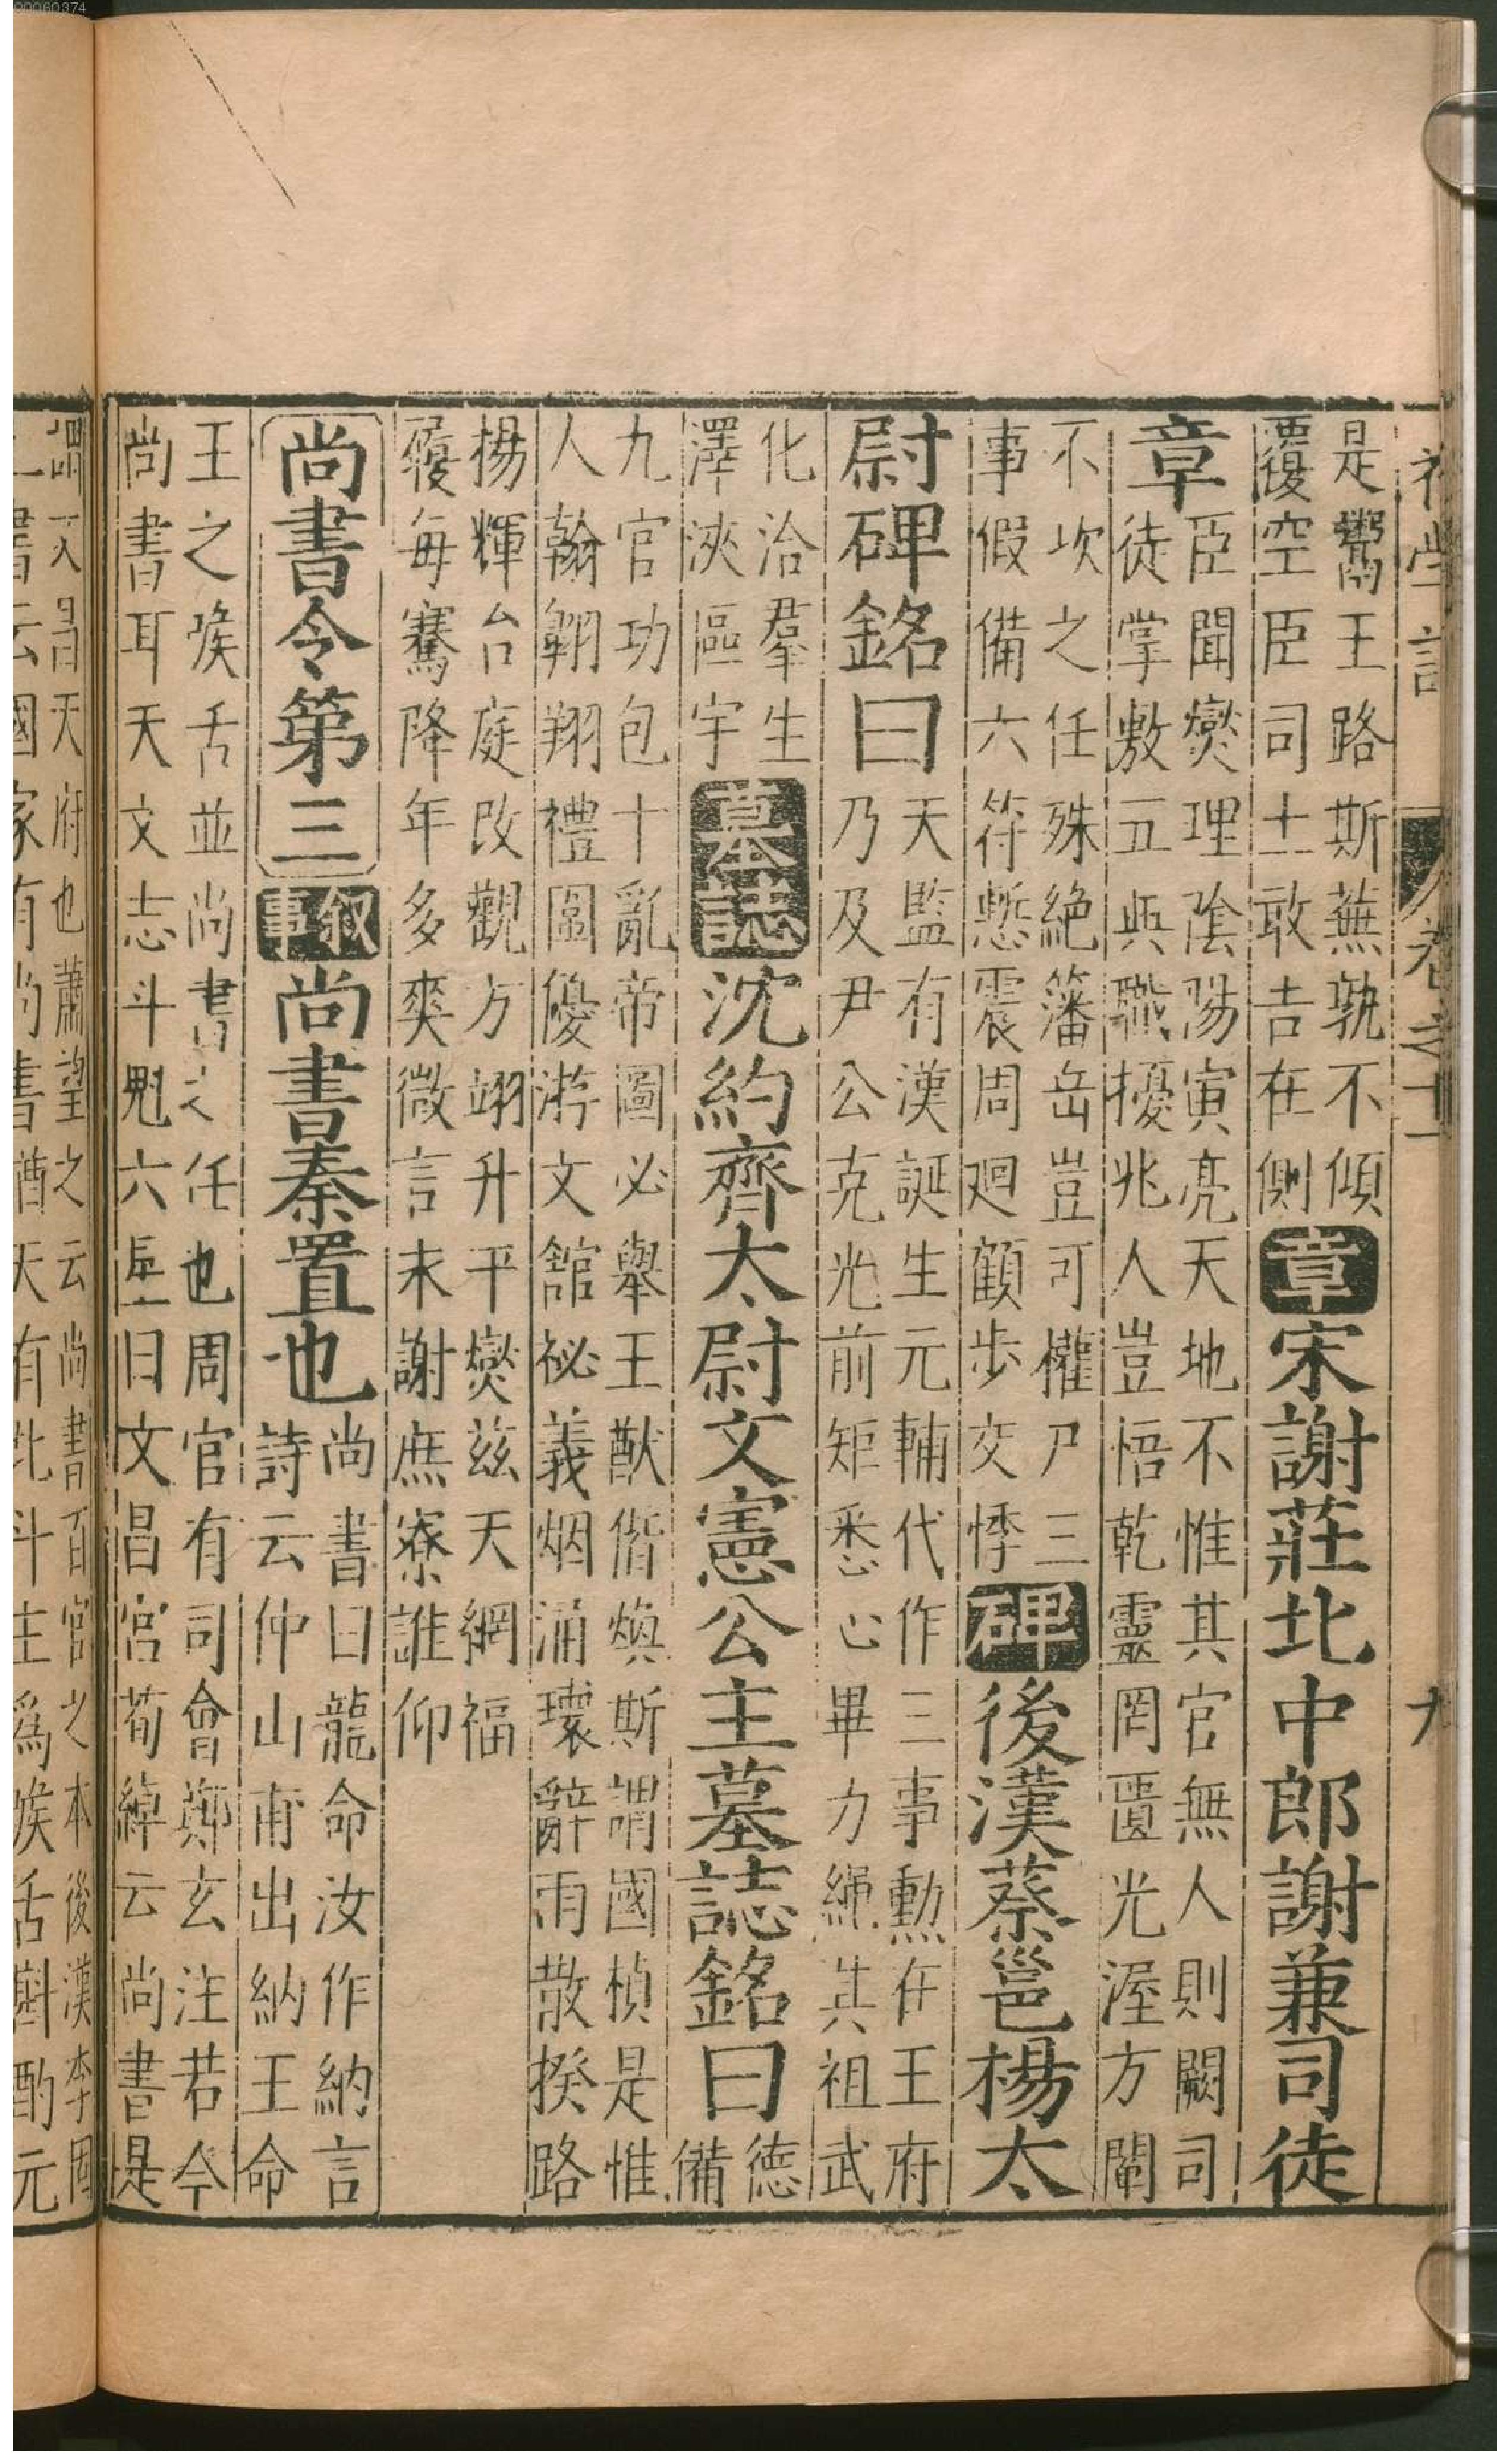 是鬻王路斯蕪孰不傾
覆空臣司土敢告在側
章宋謝莊北中郎謝兼司徒
章
臣聞爕理陰陽寅亮天地不惟其官無人則闕司
徒掌敷五典職擾兆人豈悟乾靈罔匱光渥方闡
不坎之任殊絶籓岳豈可權尸三
事假備六符慙震周廻顧步交悸
碑後漢蔡邕楊太
尉碑銘曰
天監有漢誕生元輔代作三事勳在王府
乃及尹公克光前矩悉心畢力繩其祖武
化洽羣生
澤浹區宇
墓誌沈約齊太尉文憲公主墓誌銘曰
德
備
九官功包十亂帝圖必舉王猷偕煥斯謂國楨是惟
人翰翺翔禮圃優游文舘祕義烟涌瓌辭雨散揆路
揚輝台庭改觀方翊升平爕兹天網福
履每騫降年多爽微言未謝庶寮誰仰
尚書令第三
叙事尚書秦置也
尚書曰龍命汝作納言
詩云仲山甫出納王命
王之喉舌並尚書之任也周官有司會鄭玄注若今
尚書耳天文志斗魁六星曰文昌宮荀綽云尚書是
謂文昌天府也蕭望之云尚書百官之本後漢李固
上書云國家有尚書猶天有北斗斗主爲喉舌斟酌元
卷之十一
九
00060374